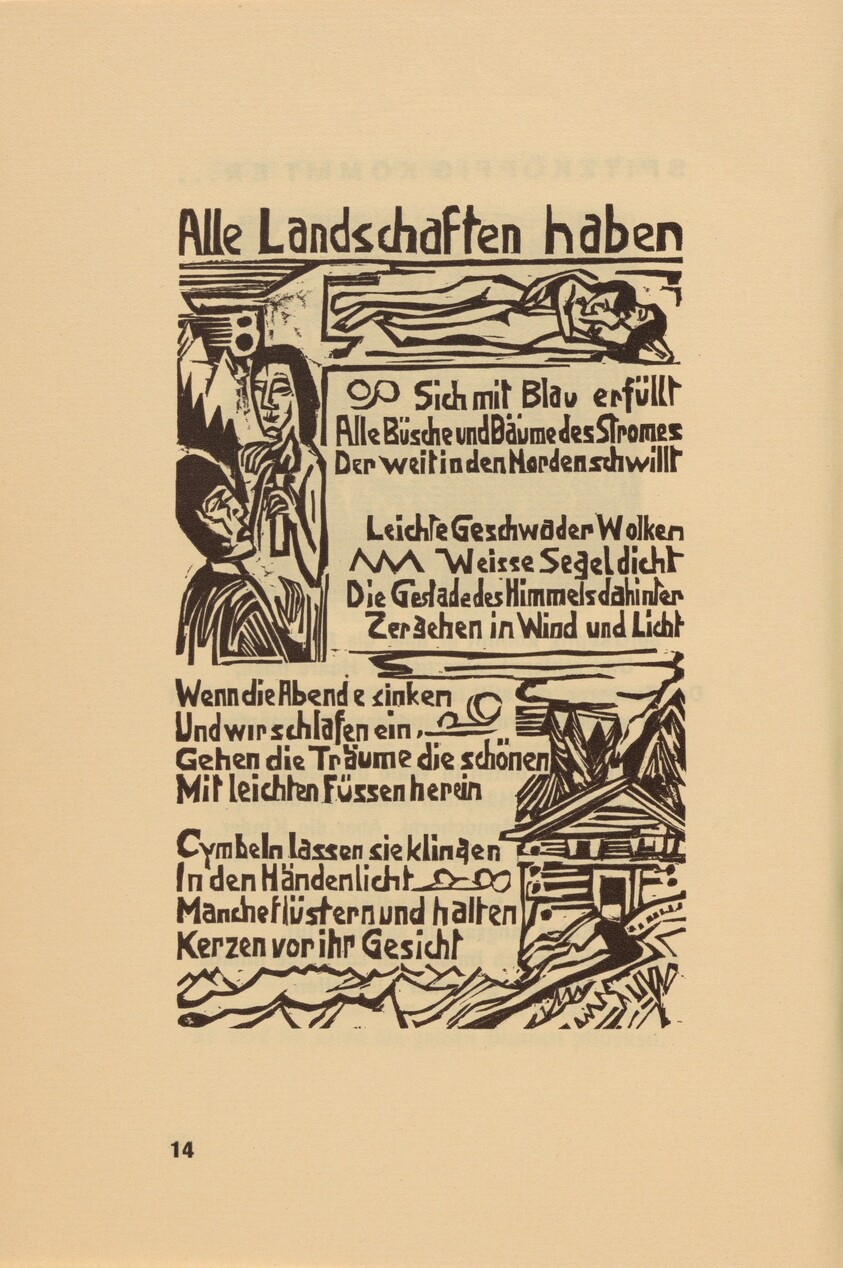 Alle Landschaften haben
Sich mit Blau erfüllt
Alle Büsche und Bäume des Stromes
Der weit in den Norden schwillt
Leichte Geschwader Wolken
Weisse Segel dicht
Die Gestade des Himmels dahinter
Zergehen in Wind und Licht
Wenn die Abende sinken
Und wir schlafen ein,
Gehen die Träume die schönen
Mit leichten Füssen herein
Cymbeln lassen sie klingen
In den Händen licht
Manche flüstern und halten
Kerzen vor ihr Gesicht
14